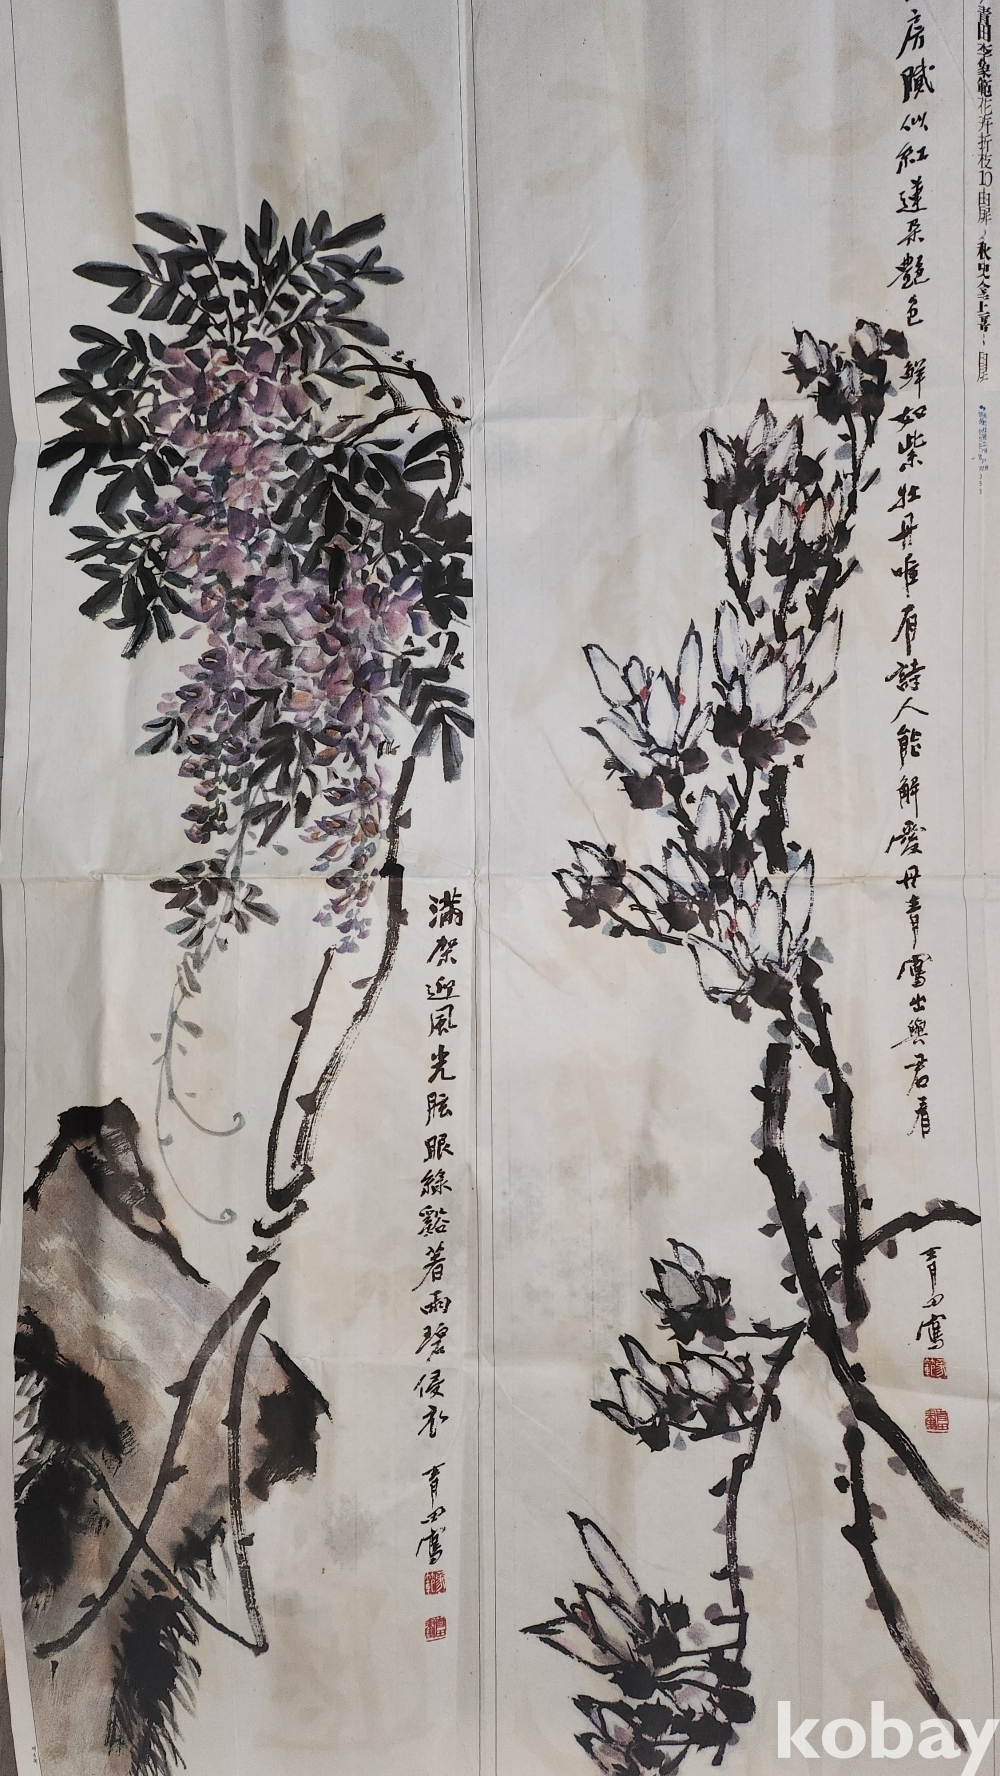 青田李象範花卉折枝10曲屏
房膩似紅蓮朶艶色鮮如紫牡丹唯有詩人能解愛丹青寫出與君看
青田寫
滿架迎風光眩眼綠谿着雨碧侵衣
青田寫
kobay